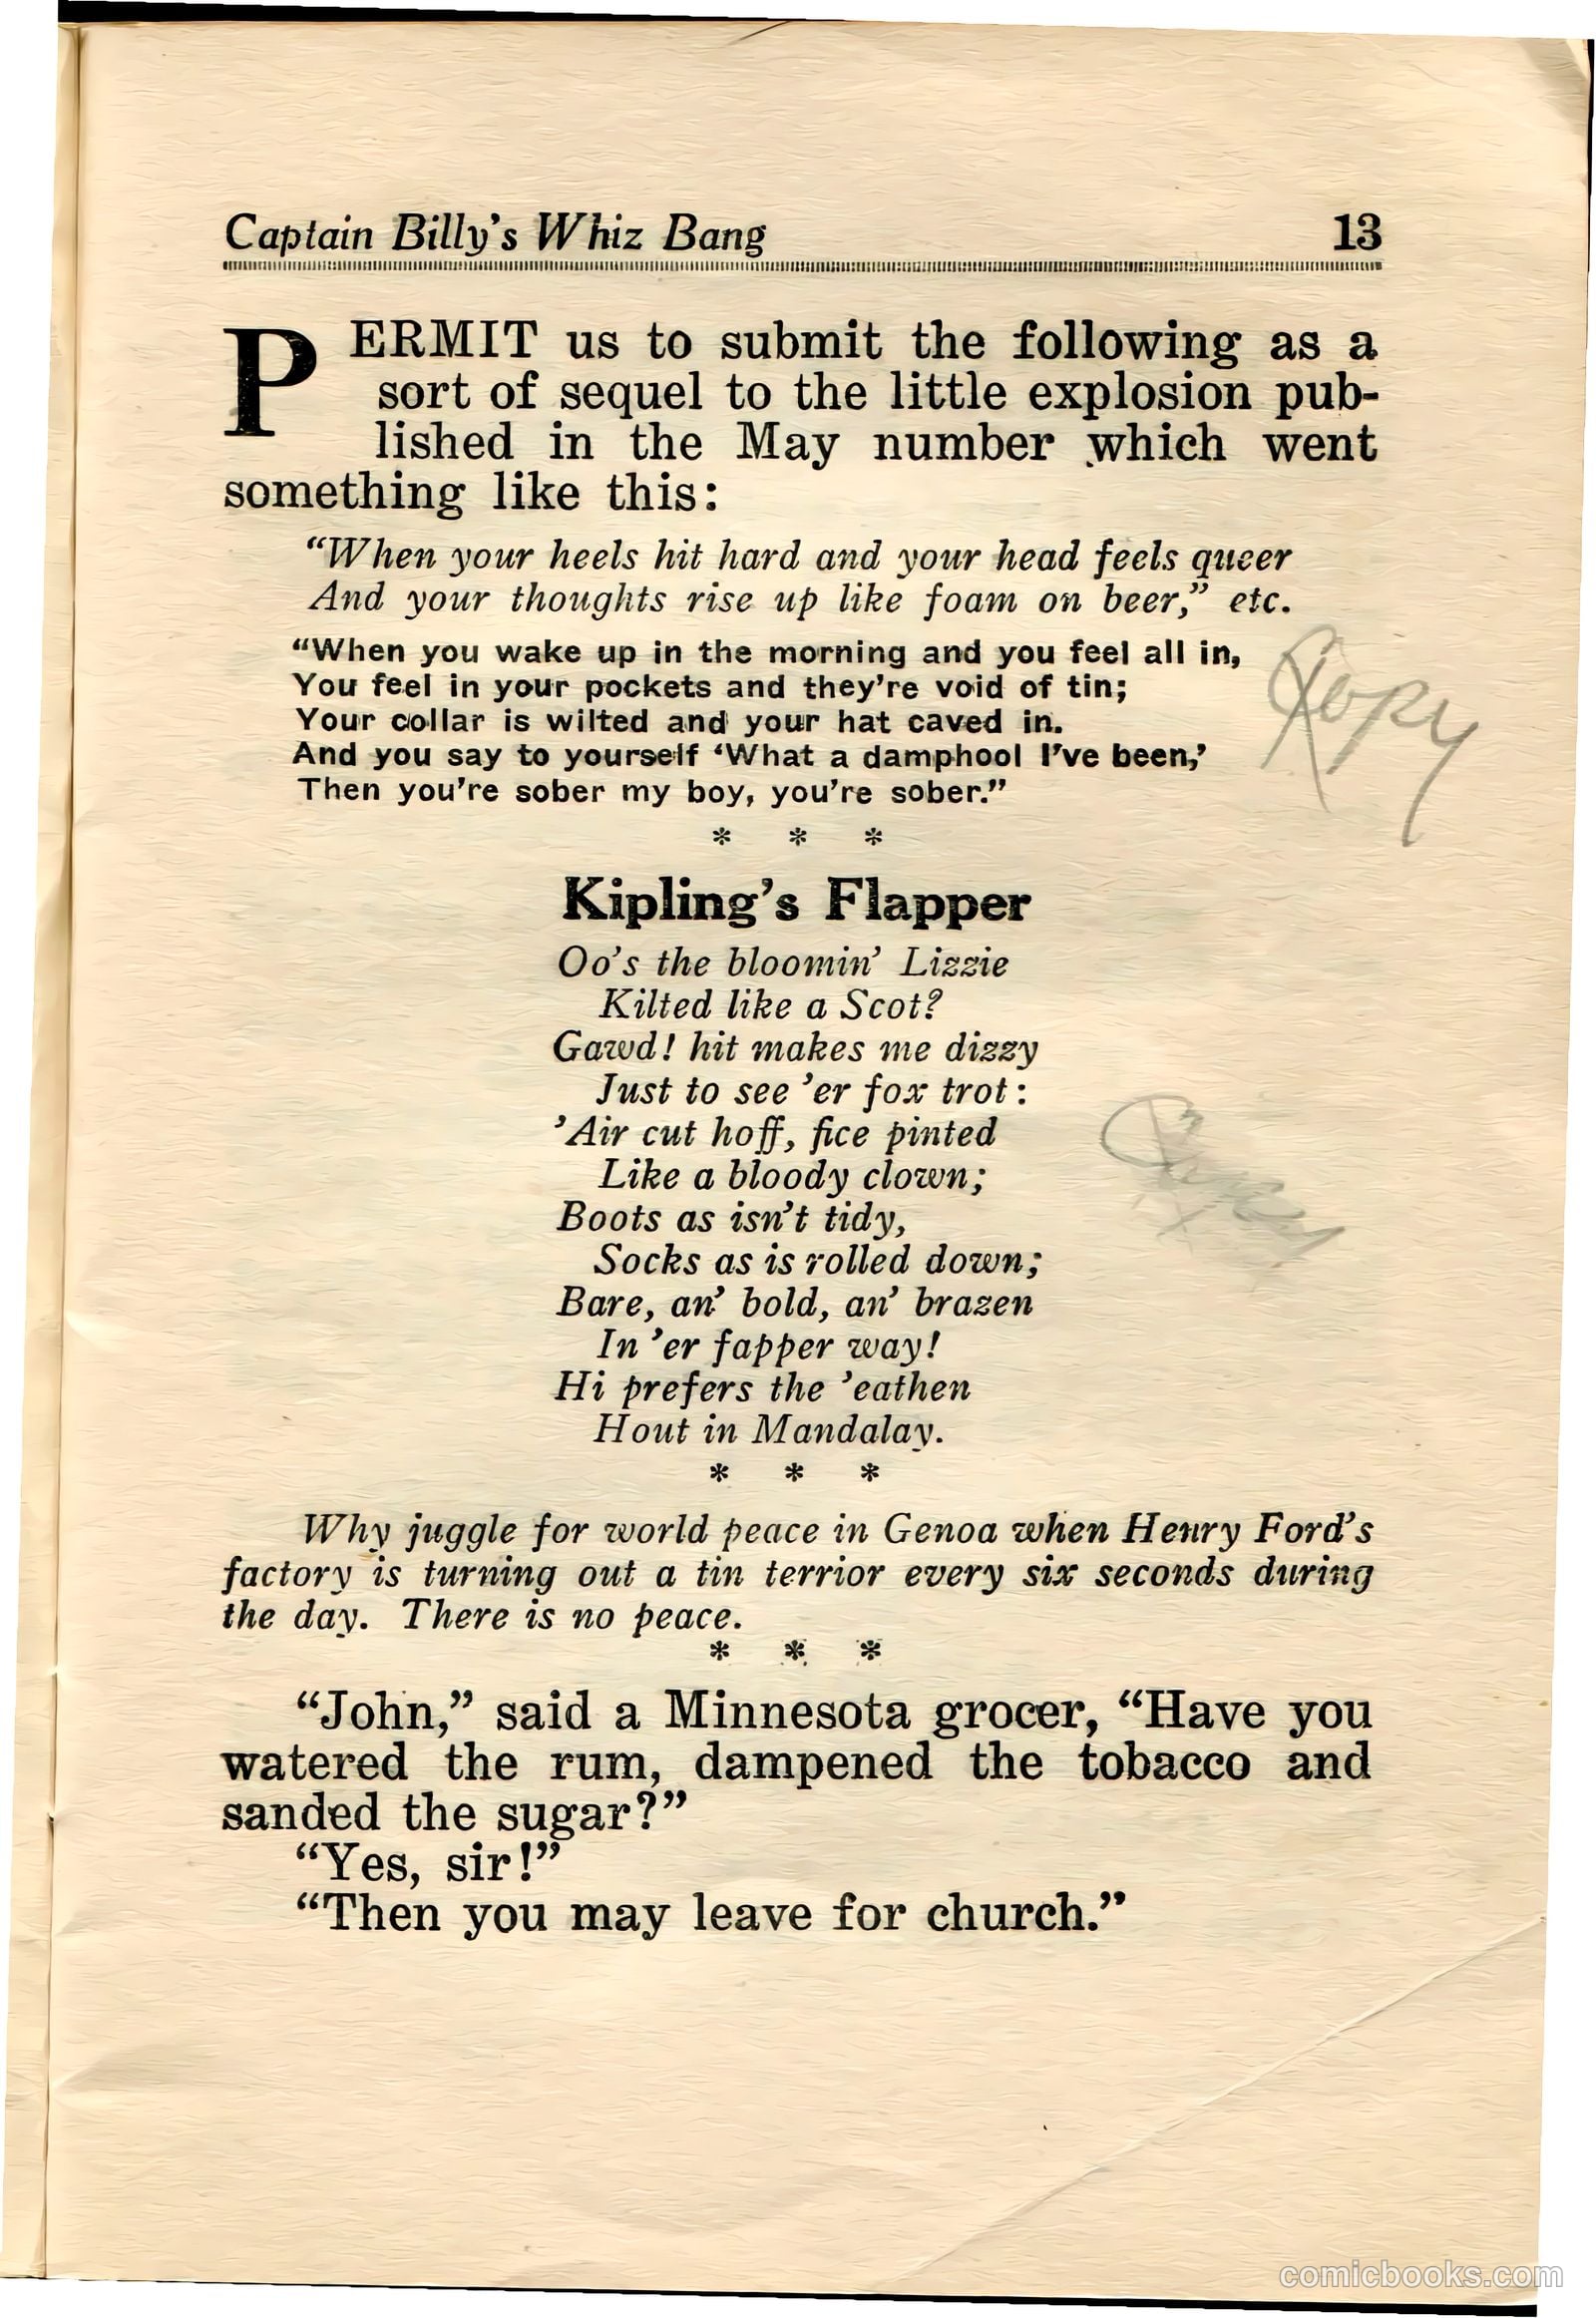 Captain Billy's Whiz Bang 13
PERMIT us to submit the following as a
sort of sequel to the little explosion pub-
lished in the May number which went
something like this:
“When your heels hit hard and your head feels queer
And your thoughts rise up like foam on beer,” etc.
“When you wake up in the morning and you feel all in,
You feel in your pockets and they're void of tin;
Your collar is wilted and your hat caved in.
And you say to yourself ‘What a damphool I've been,’
Then you're sober my boy, you're sober.”
Copy
* * *
Kipling's Flapper
Oo's the bloomin' Lizzie
Kilted like a Scot?
Gawd! hit makes me dizzy
Just to see 'er fox trot:
'Air cut hoff, fice pinted
Like a bloody clown;
Boots as isn't tidy,
Socks as is rolled down;
Bare, an' bold, an' brazen
In 'er fapper way!
Hi prefers the 'eathen
Hout in Mandalay.
* * *
Why juggle for world peace in Genoa when Henry Ford's
factory is turning out a tin terrior every six seconds during
the day. There is no peace.
* * *
“John,” said a Minnesota grocer, “Have you
watered the rum, dampened the tobacco and
sanded the sugar?”
“Yes, sir!”
“Then you may leave for church.”
comicbooks.com